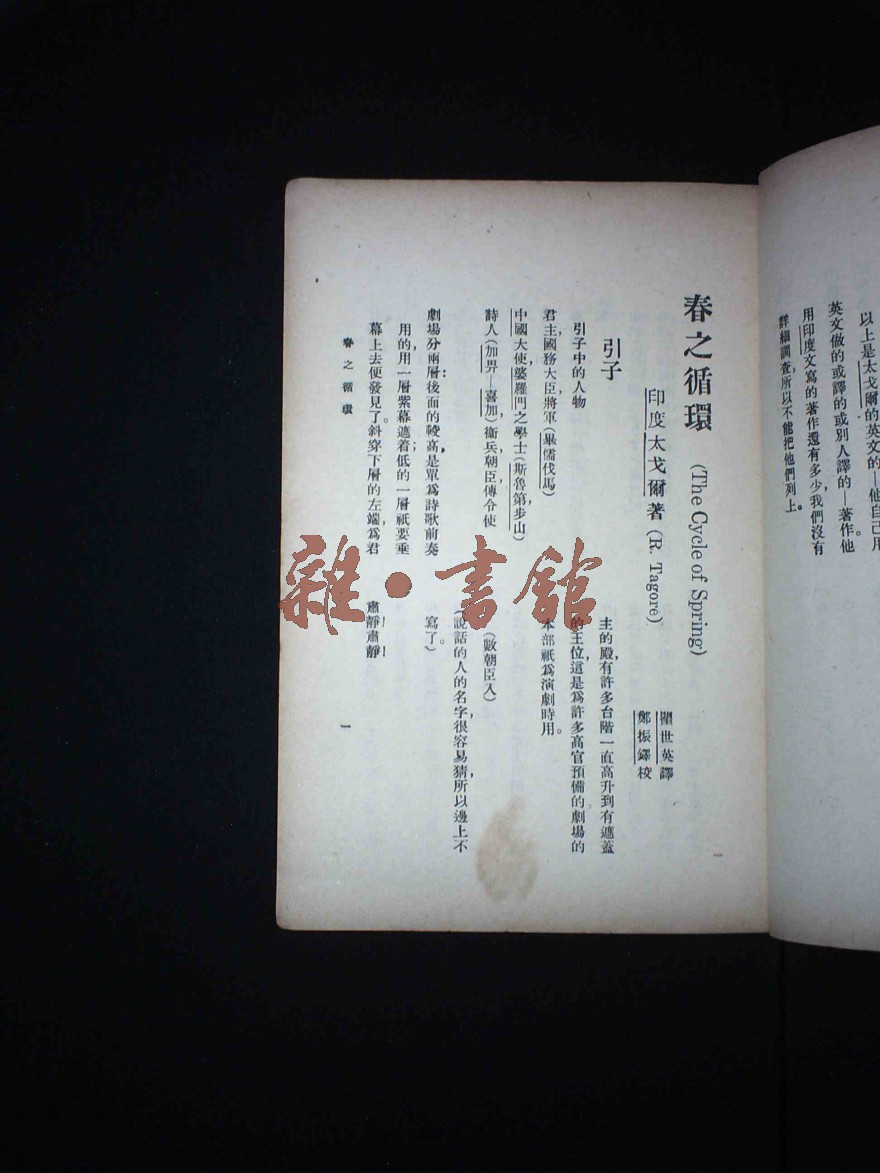 以上是太戈爾的英文的—他自己用
英文做的或譯的或別人譯的—著作他
用印度文寫的著作還有多少我們沒有
詳細調查所以不能把他們列上。
春之循環 (The Cycle of Spring)
印度太戈爾著 (R. Tagore)
瞿世英譯
鄭振鐸校
引子
引子中的人物
君主,國務大臣,將軍(畢儒伐馬)
中國大使,婆羅門之學士(斯魯第步山)
詩人(加畀—喜加)衞兵,朝臣,傳令使
劇場分兩層:後面的較高,是單爲詩歌前奏
用的,用一層紫幕遮着;低的一層祇要垂
幕上去便發見了。斜穿下層的左端,爲君
主的殿,有許多台階一直高升到有遮蓋
的王位,這是爲許多高官預備的劇場的
本部祇爲演劇時用。
(數朝臣入)
(說話的人的名字很容易猜,所以邊上不
寫了。)
肅靜!肅靜!
春之循環
一
雜·書館